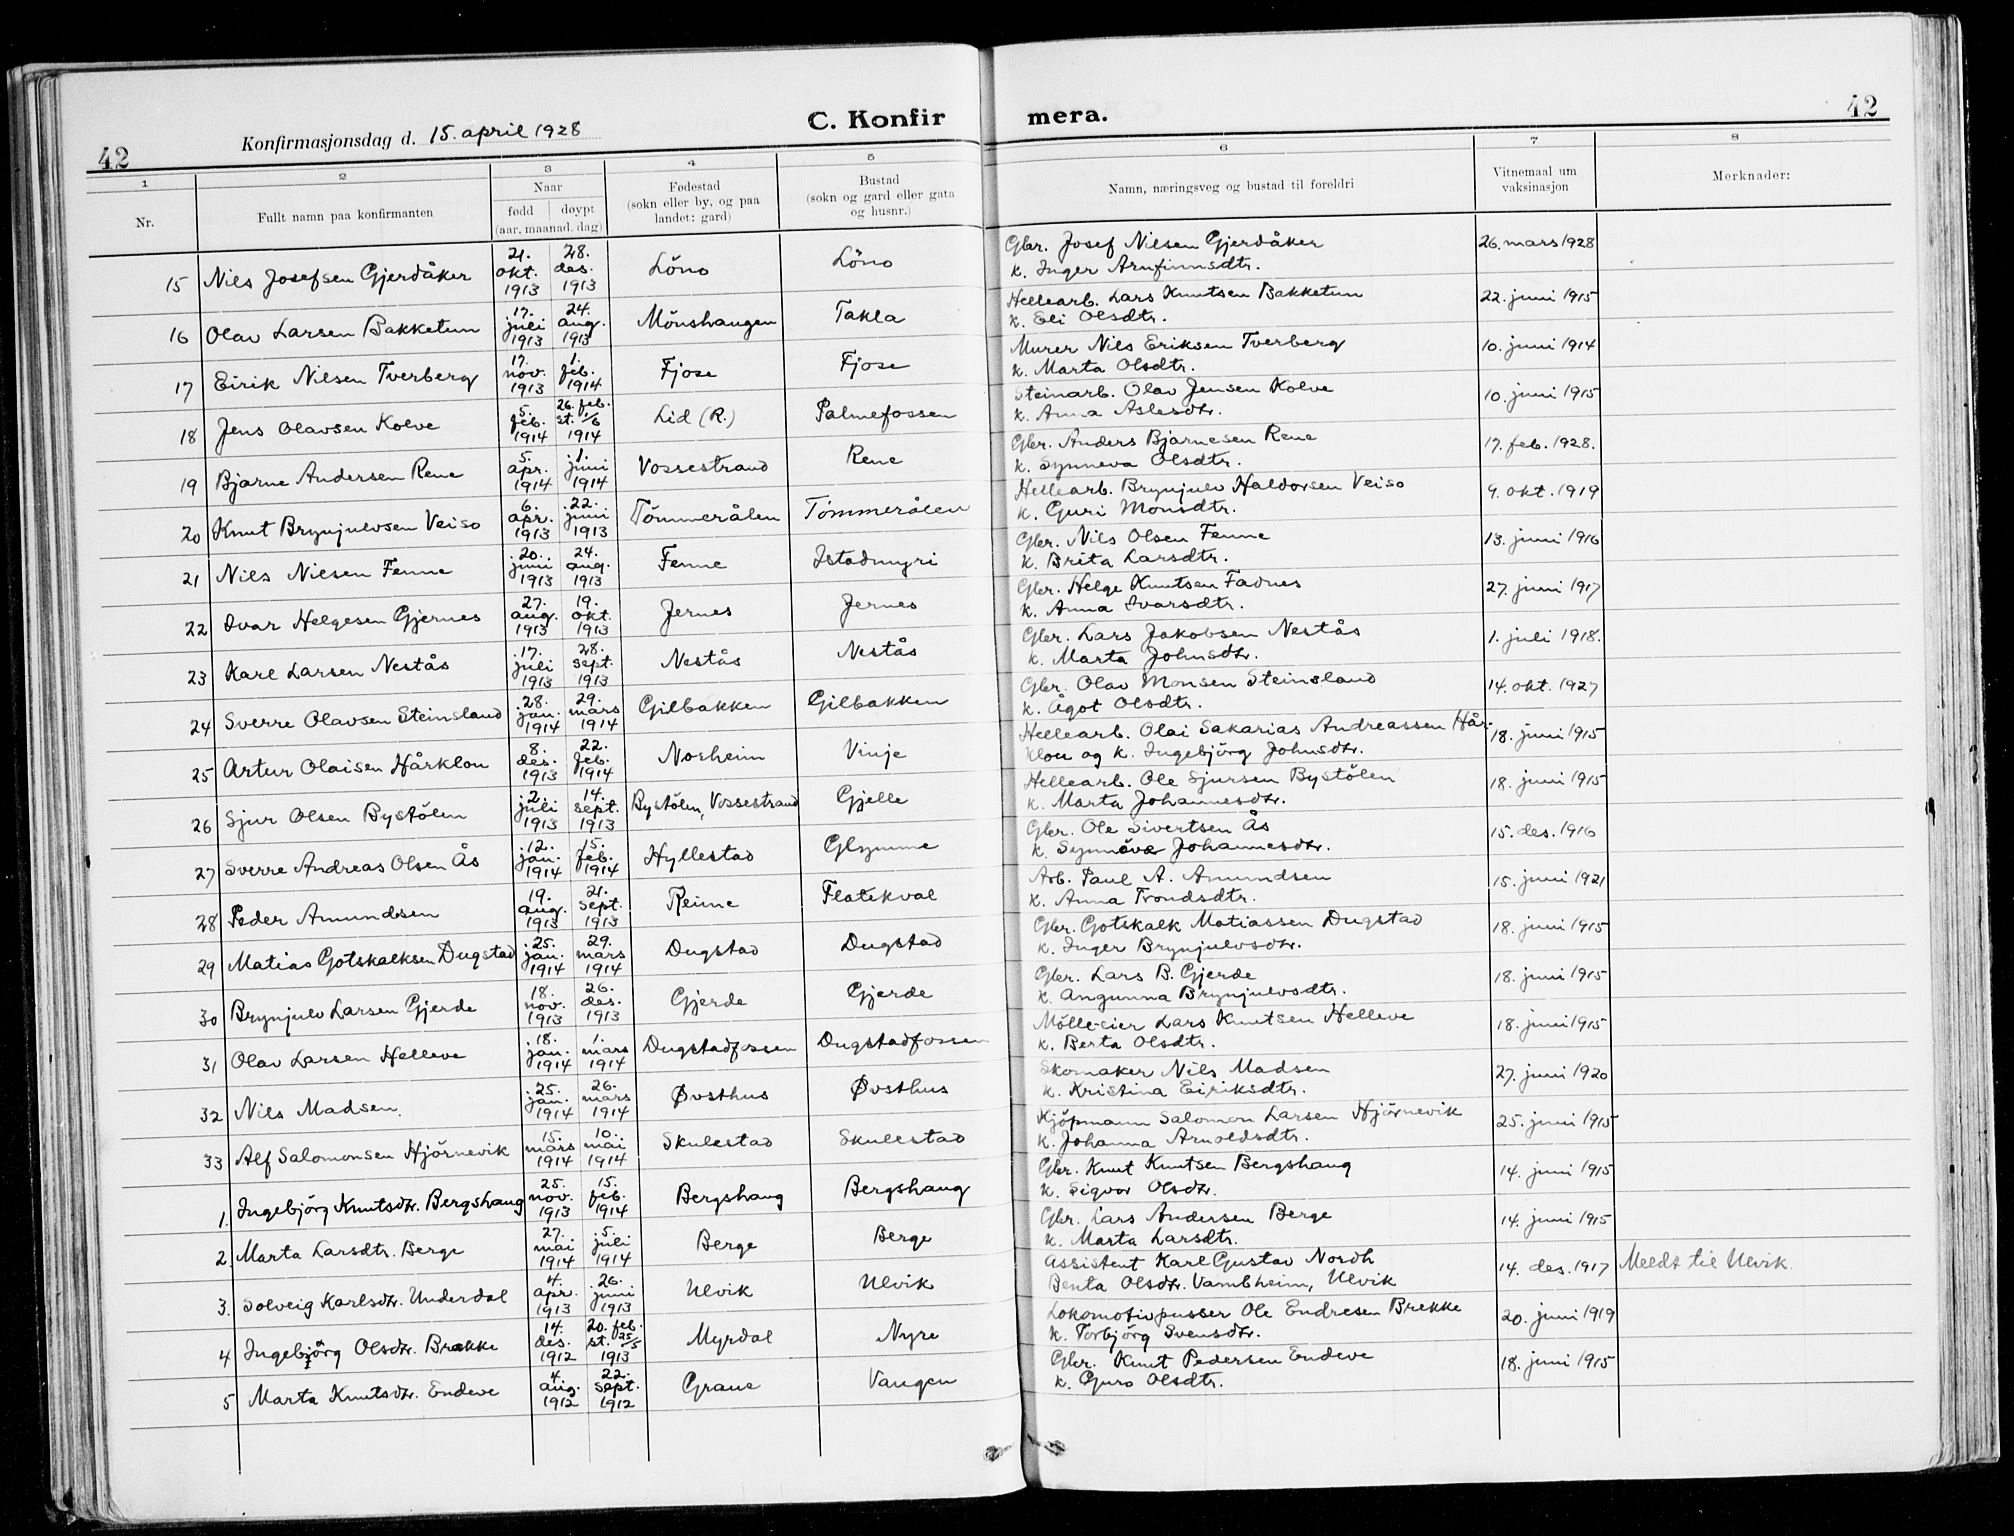 42 Konfirmasjonsdag d. 15. april 1928 C. Konfir mera. 42
1 2 3 4 5 6 7 8
Nr. Fullt namn paa konfirmanten Naar fødd døypt (aar, maanad, dag) Fødestad (sokn eller by, og paa landet: gard) Bustad (sokn og gard eller gata og husnr.) Namn, næringsveg og bustad til foreldri Vitnemaal um vaksinasjon Merknader:
15 Nils Josefsen Gjerdåker 21. okt. 1913 28. des. 1913 Löno Löno Gbr. Josef Nilsen Gjerdåker k. Inger Arnfinnsdtr. 26. mars 1928
16 Olav Larsen Bakketun 17. juli 1913 24. aug. 1913 Mönshaugen Takla Hellearb. Lars Knutsen Bakketun k. Eli Olsdtr. 22. juni 1915
17 Eirik Nilsen Tverberg 17. nov. 1913 1. feb. 1914 Fjose Fjose Murer Nils Eriksen Tverberg k. Marta Olsdtr. 10. juni 1914
18 Jens Olavsen Kolve 5. feb. 1914 26. feb. st. 1/6 1914 Lid (R.) Palmefossen Steinarb. Olav Jensen Kolve k. Anna Aslesdtr. 10. juni 1915
19 Bjarne Andersen Rene 5. apr. 1914 1. juni 1914 Vossestrand Rene Gbr. Anders Bjarnesen Rene k. Synneva Olsdtr. 17. feb. 1928.
20 Knut Brynjulvsen Veiso 6. apr. 1913 22. juni 1913 Tömmerålen Tömmerålen Hellearb. Brynjulv Haldorsen Veiso k. Guri Monsdtr. 9. okt. 1919
21 Nils Nilsen Fenne 20. juni 1913 24. aug. 1913 Fenne Istadmyri Gbr. Nils Olsen Fenne k. Brita Larsdtr. 13. juni 1916
22 Ivar Helgesen Gjernes 27. aug. 1913 19. okt. 1913 Jernes Jernes Gbr. Helge Knutsen Fadnes k. Anna Ivarsdtr. 27. juni 1917
23 Karl Larsen Nestås 17. juli 1913 28. sept. 1913 Nestås Nestås Gbr. Lars Jakobsen Nestås k. Marta Johnsdtr. 1. juli 1918.
24 Sverre Olavsen Steinsland 28. jan. 1914 29. mars 1914 Gilbakken Gilbakken Gbr. Olav Monsen Steinsland k. Ågot Olsdtr. 14. okt. 1927
25 Artur Olaisen Hårklou 8. des. 1913 22. feb. 1914 Norheim Vinje Hellearb. Olai Sakarias Andreassen Hår- klou og k. Ingebjörg Johnsdtr. 18. juni 1915
26 Sjur Olsen Bystölen 2. juli 1913 14. sept. 1913 Bystölen, Vossestrand Gjelle Hellearb. Ole Sjursen Bystölen k. Marta Johannesdtr. 18. juni 1915
27 Sverre Andreas Olsen Ås 12. jan. 1914 15. feb. 1914 Hyllestad Glymme Gbr. Ole Sivertsen Ås k. Synnöve Johannesdtr. 15. des. 1916
28 Peder Amundsen 19. aug. 1913 21. sept. 1913 Reime Flatekval Arb. Paul A. Amundsen k. Anna Trondsdtr. 15. juni 1921
29 Matias Gotskalksen Dugstad 25. jan. 1914 29. mars 1914 Dugstad Dugstad Gbr. Gotskalk Matiassen Dugstad k. Inger Brynjulvsdtr. 18. juni 1915
30 Brynjulv Larsen Gjerde 18. nov. 1913 26. des. 1913 Gjerde Gjerde Gbr. Lars B. Gjerde k. Angunna Brynjulvsdtr. 18. juni 1915
31 Olav Larsen Helleve 18. jan. 1914 1. mars 1914 Dugstadfossen Dugstadfossen Mölleeier Lars Knutsen Helleve k. Berta Olsdtr. 18. juni 1915
32 Nils Madsen. 25. jan. 1914 26. mars 1914 Øvsthus Øvsthus Skomaker Nils Madsen k. Kristina Eiriksdtr. 27. juni 1920
33 Alf Salomonsen Hjörnevik 15. mars 1914 10. mai 1914 Skulestad Skulestad Kjöpmann Salomon Larsen Hjörnevik k. Johanna Arnoldsdtr. 25. juni 1915
1. Ingebjörg Knutsdtr. Bergshaug 25. nov. 1913 15. feb. 1914 Bergshaug Bergshaug Gbr. Knut Knutsen Bergshaug k. Sigvor Olsdtr. 14. juni 1915
2 Marta Larsdtr. Berge 27. mai 1914 5. juli 1914 Berge Berge Gbr. Lars Andersen Berge k. Marta Larsdtr. 14. juni 1915
3. Solveig Karlsdtr. Underdal 4. apr. 1913 26. juni 1913 Ulvik Ulvik Assistent Karl Gustav Nordh Benta Olsdtr. Vambheim, Ulvik 14. des. 1917 Meldt til Ulvik.
4 Ingebjörg Olsdtr. Brekke 14. des. 1912 20. feb. st. 25/5 1913 Myrdal Nyre Lokomotivpusser Ole Endresen Brekke k. Torbjörg Svensdtr. 20. juni 1919
5 Marta Knutsdtr. Endeve 4. aug. 1912 22. sept. 1912 Graue Vangen Gbr. Knut Pedersen Endeve k. Guro Olsdtr. 18. juni 1915